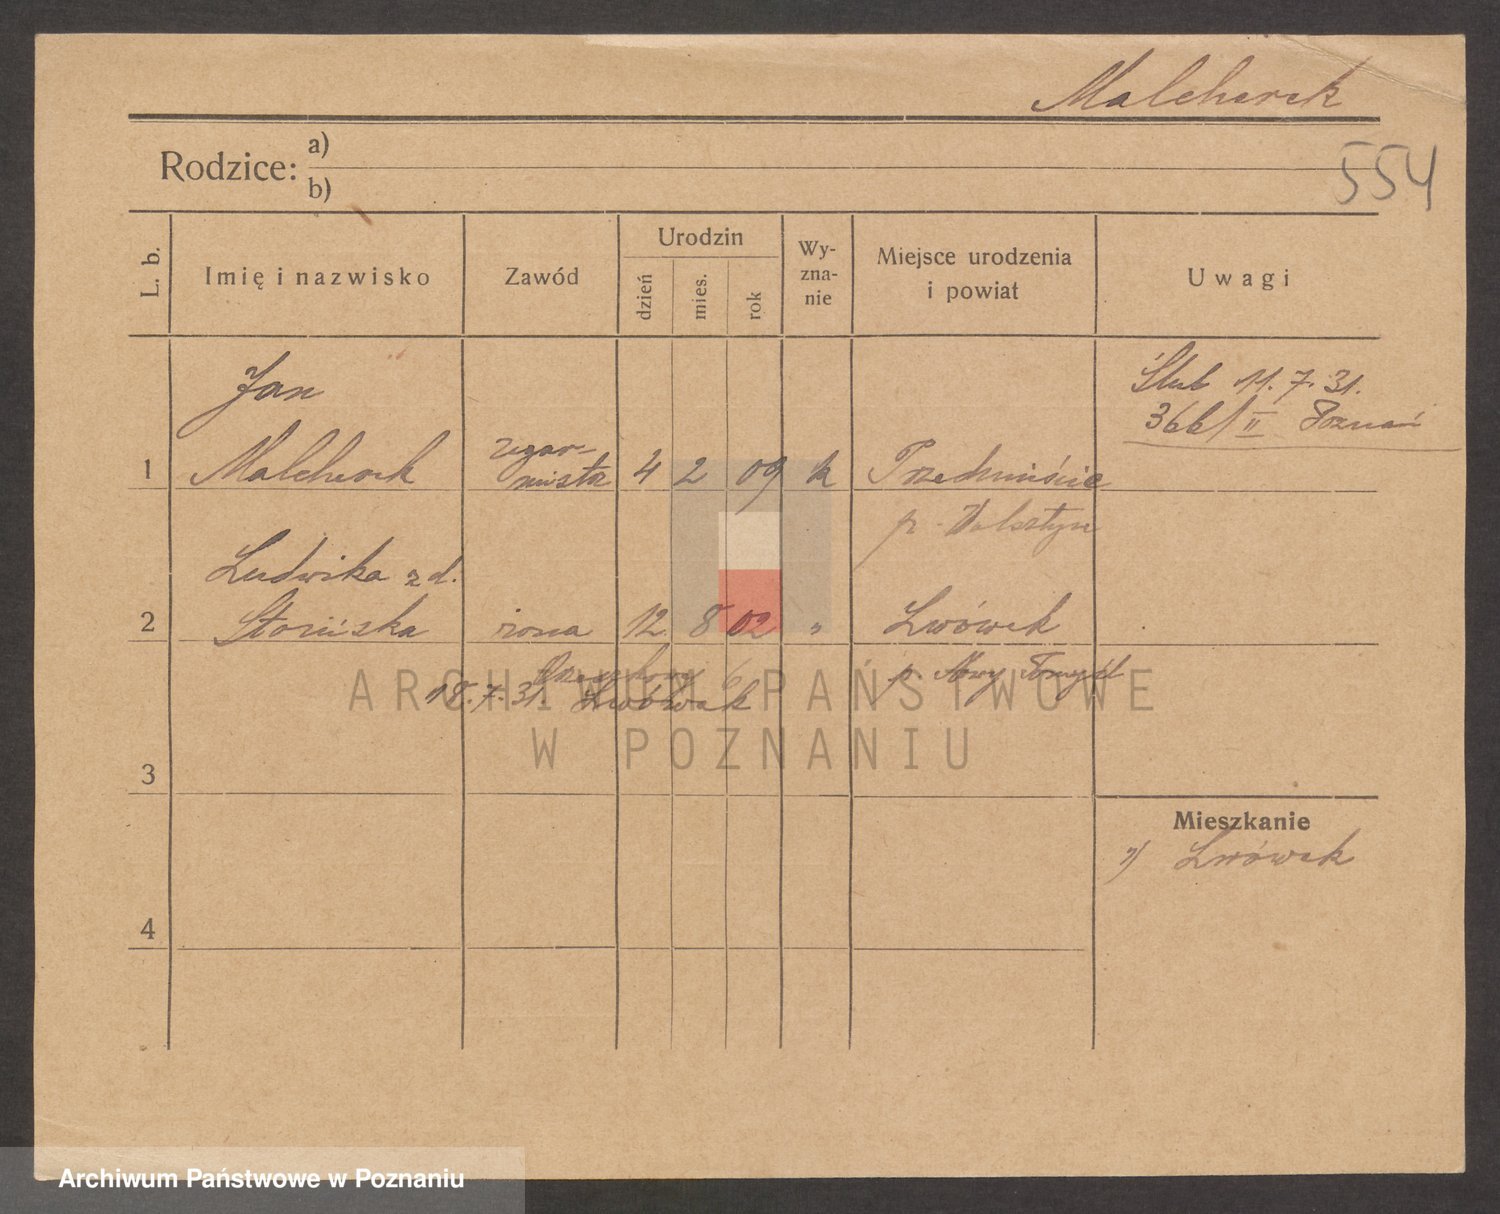 Malcherek
554
Rodzice: a)
b)
L. b.
Imię i nazwisko
Zawód
Urodzin
dzień
mies.
rok
Wy-
zna-
nie
Miejsce urodzenia
i powiat
Uwagi
Ślub 11. 7. 31.
366/II Poznań
Jan
1 Malcherek
zegar-
mistrz
4 2 09 k
p. Wolsztyn
Ludwika z d.
2
żona 12 8 02 "
Lwówek
p. Nowy Tomyśl
18. 7. 31. Lwówek
3
Mieszkanie
1) Lwówek
4
ARCHIWUM PAŃSTWOWE
W POZNANIU
Archiwum Państwowe w Poznaniu